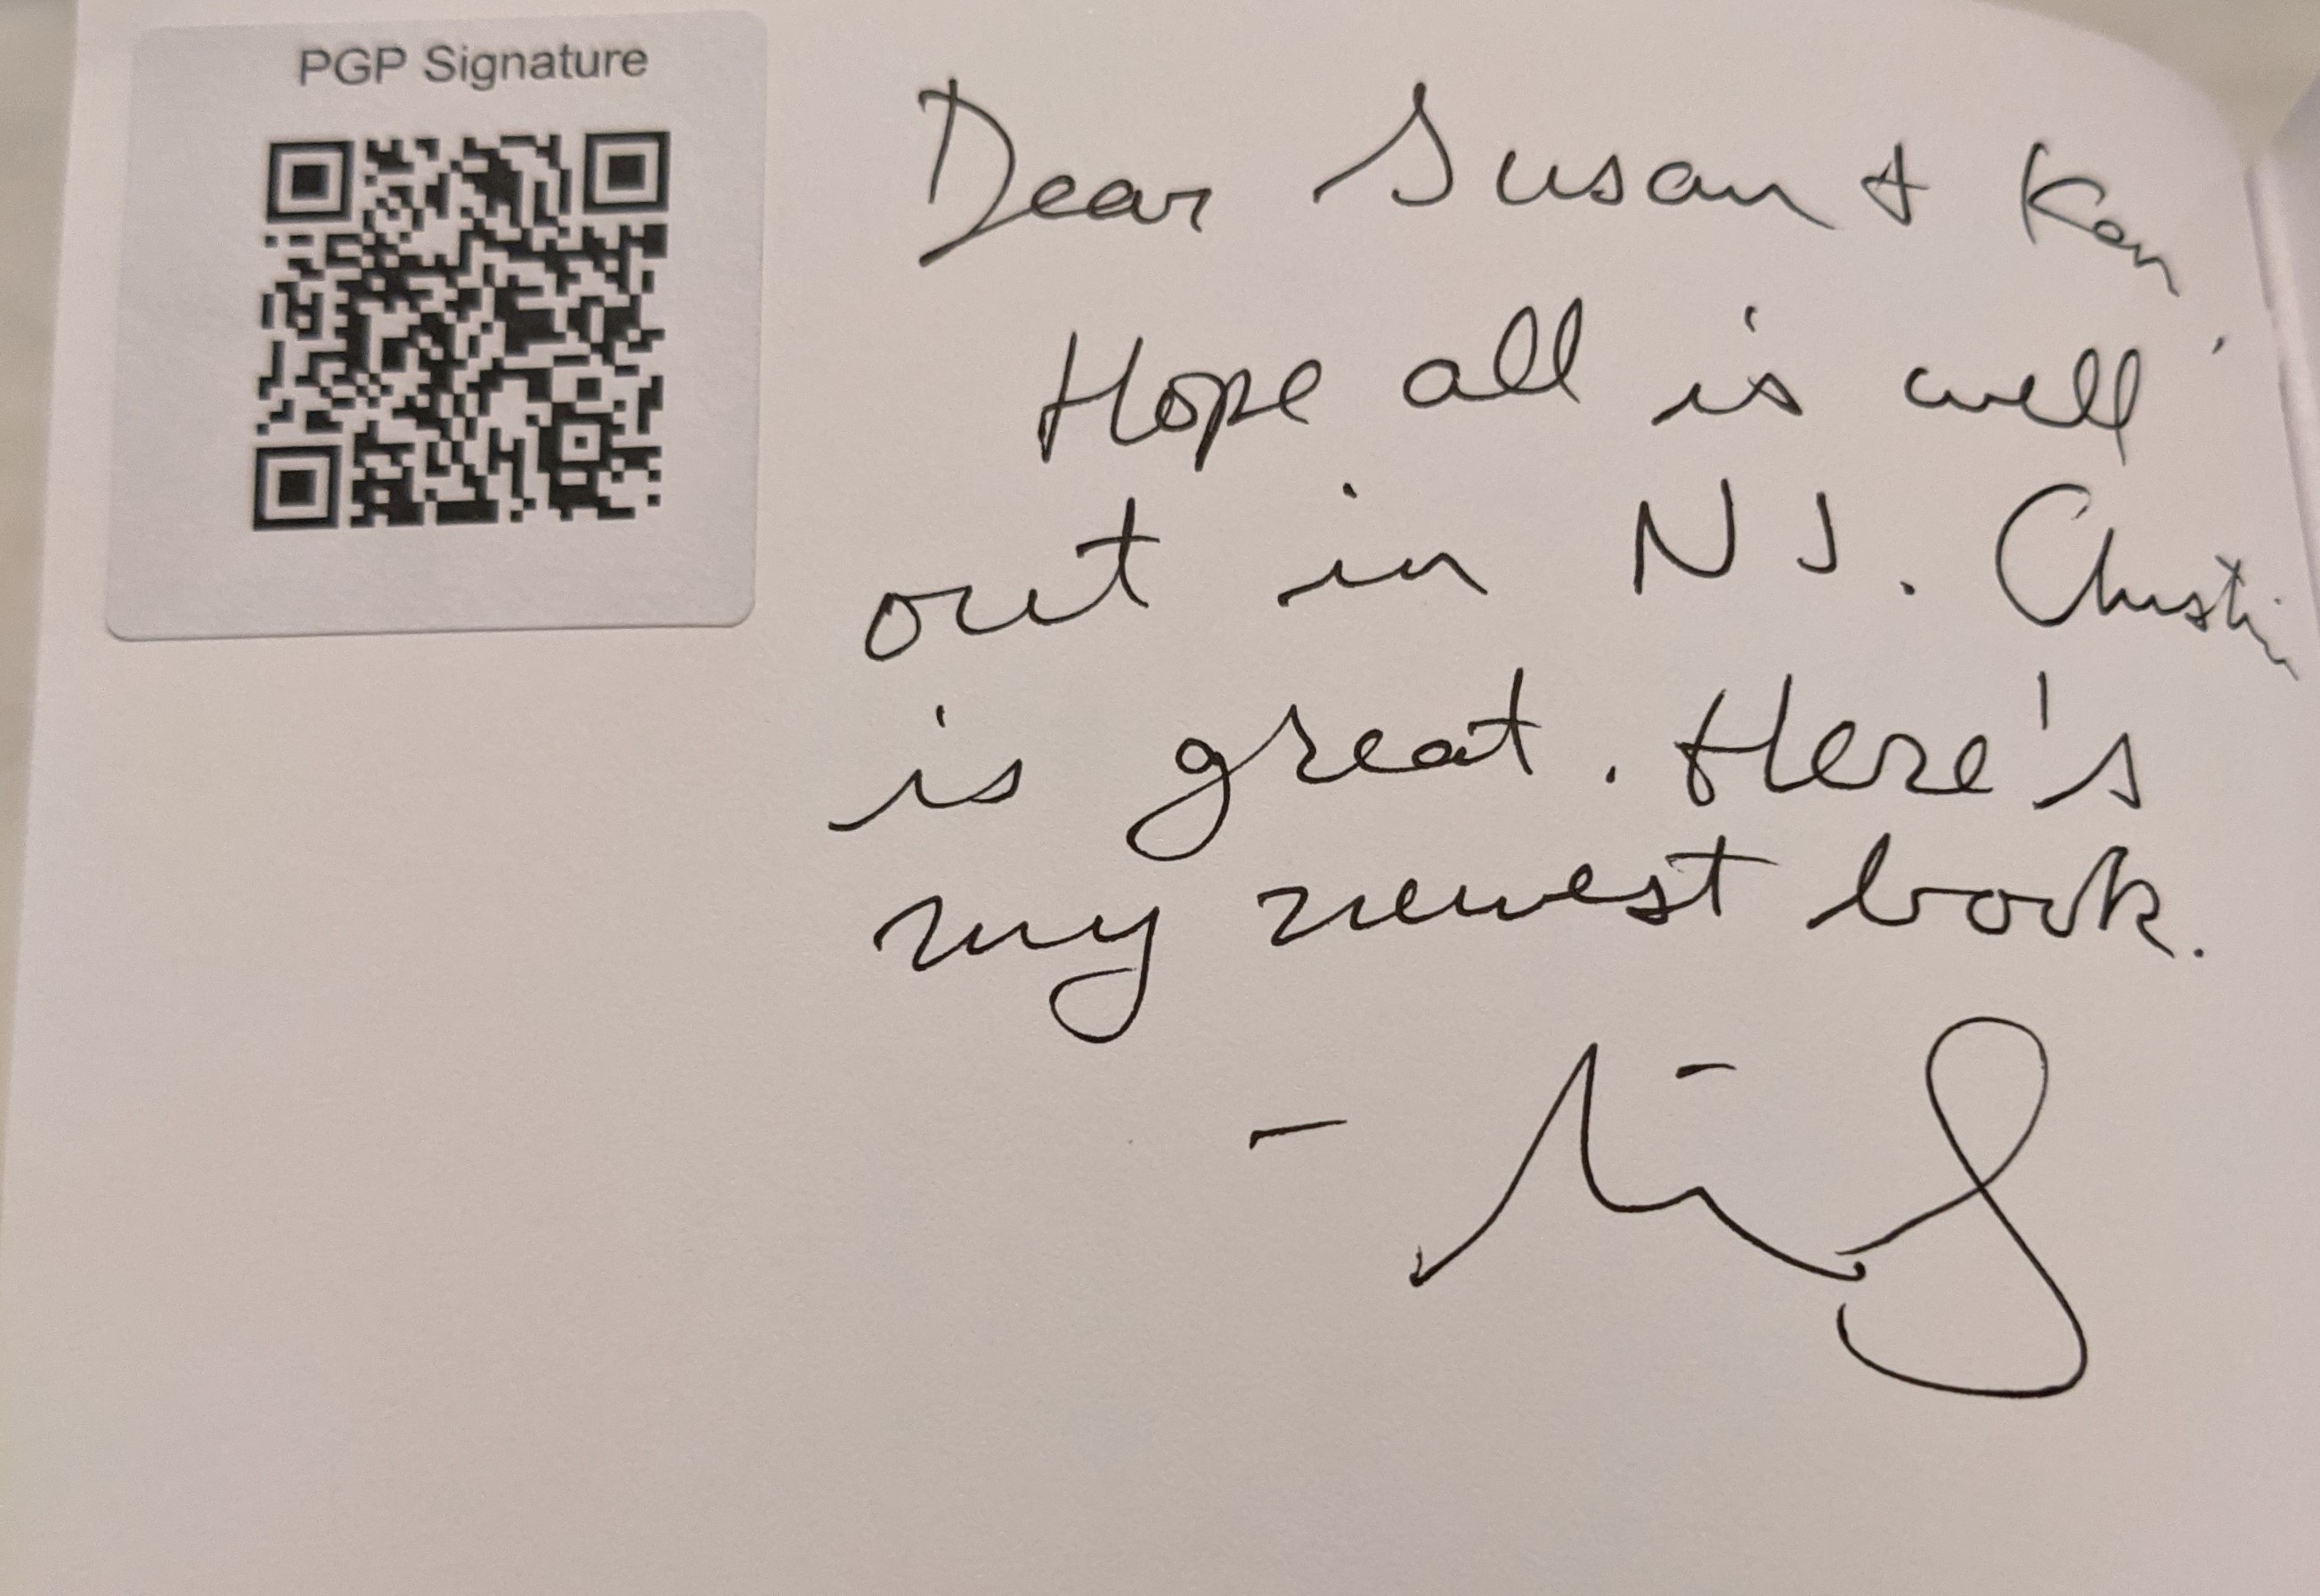 PGP Signature
Dear Susan + Ken,
Hope all is well
out in NJ. Christin
is great. Here's
my newest book.